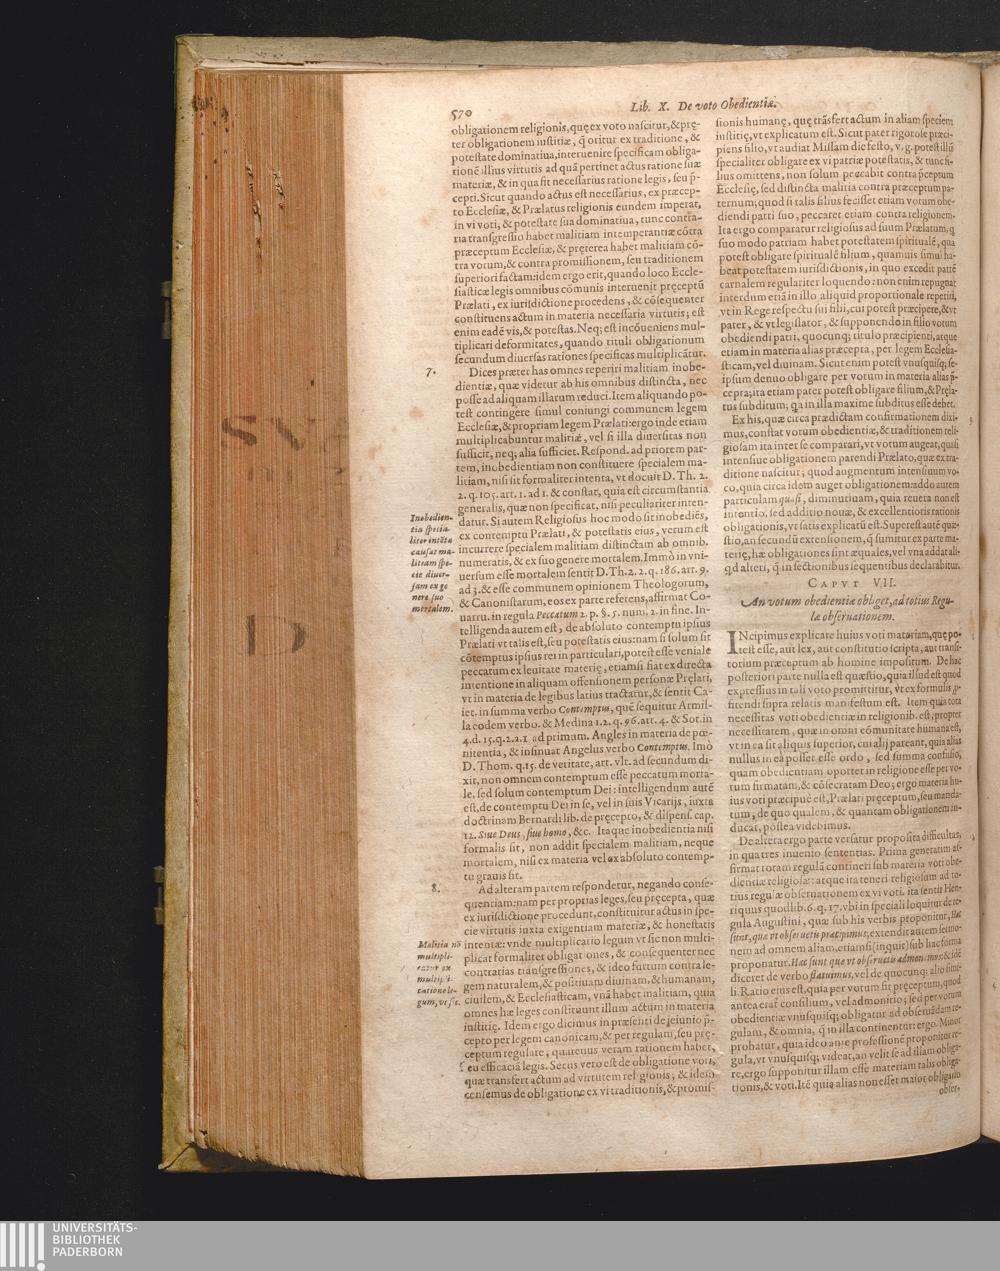 570
Lib. X. De voto Obedientiæ.
obligationem religionis, quę ex voto nascitur, & prę-
ter obligationem iustitiæ, q̃ oritur ex traditione, &
potestate dominatiua, interuenire specificam obliga-
tionẽ illius virtutis ad quã pertinet actus ratione suæ
materiæ, & in qua fit necessarius ratione legis, seu p̃-
cepti. Sicut quando actus est necessarius, ex præcep-
to Ecclesiæ, & Prælatus religionis eundem imperat,
in vi voti, & potestate sua dominatiua, tunc contra-
ria transgressio habet malitiam intemperantiæ cõtra
præceptum Ecclesiæ, & pręterea habet malitiam cõ-
tra votum, & contra promissionem, seu traditionem
superiori factam: idem ergo erit, quando loco Eccle-
siasticæ legis omnibus cõmunis interuenit pręceptũ
Prælati, ex iurisdictione procedens, & cõsequenter
constituens actum in materia necessaria virtutis; est
enim eadẽ vis, & potestas. Neq; est incõueniens mul-
tiplicari deformitates, quando tituli obligationum
secundum diuersas rationes specificas multiplicãtur.
7.
Dices præter has omnes reperiri malitiam inobe-
dientiæ, quæ videtur ab his omnibus distincta, nec
posse ad aliquam illarum reduci. Item aliquando po-
test contingere simul coniungi communem legem
Ecclesiæ, & propriam legem Prælati: ergo inde etiam
multiplicabuntur malitiæ, vel si illa diuersitas non
sufficit, neq; alia sufficiet. Respond. ad priorem par-
tem, inobedientiam non constituere specialem ma-
litiam, nisi sit formaliter intenta, vt docuit D. Th. 2.
2. q. 105. art. 1. ad 1. & constat, quia est circumstantia
generalis, quæ non specificat, nisi peculiariter inten-
datur. Si autem Religiosus hoc modo sit inobediẽs,
ex contemptu Prælati, & potestatis eius, verum est
incurrere specialem malitiam distinctam ab omnib.
numeratis, & ex suo genere mortalem. Immò in vni-
uersum esse mortalem sentit D. Th. 2. 2. q. 186. art. 9.
ad 3. & esse communem opinionem Theologorum,
& Canonistarum, eos ex parte referens, affirmat Co-
uarru. in regula Peccatum 2. p. §. 5. num. 2. in fine. In-
telligenda autem est, de absoluto contemptu ipsius
Prælati vt talis est, seu potestatis eius: nam si solum sit
cõtemptus ipsius rei in particulari, potest esse veniale
peccatum ex leuitate materię, etiamsi fiat ex directa
intentione in aliquam offensionem personæ Pręlati,
vt in materia de legibus latius tractatur, & sentit Ca-
iet. in summa verbo Contemptus, quẽ sequitur Armil-
la eodem verbo. & Medina 1. 2. q. 96. art. 4. & Sot. in
4. d. 15. q. 2. a. 1 ad primum. Angles in materia de pœ-
nitentia, & insinuat Angelus verbo Contemptus. Imò
D. Thom. q. 15. de veritate, art. vlt. ad secundum di-
xit, non omnem contemptum esse peccatum morta-
le, sed solum contemptum Dei: intelligendum autẽ
est, de contemptu Dei in se, vel in suis Vicarijs, iuxta
doctrinam Bernardi lib. de pręcepto, & dispens. cap.
12. Siue Deus, siue homo, &c. Itaque inobedientia nisi
formalis sit, non addit specialem malitiam, neque
mortalem, nisi ex materia vel ex absoluto contemp-
tu grauis sit.
Inobedien-
tia specia-
liter intẽta
causat ma-
litiam spe-
cie diuer-
sam ex ge
nere suo
mortalem.
8.
Ad alteram partem respondetur, negando conse-
quentiam: nam per proprias leges, seu pręcepta, quæ
ex iurisdictione procedunt, constituitur actus in spe-
cie virtutis iuxta exigentiam materiæ, & honestatis
intentæ: vnde multiplicatio legum vt sic non multi-
plicat formaliter obligationes, & consequenter nec
contrarias trãnsgressiones, & ideo furtum contra le-
gem naturalem, & positiuam diuinam, & humanam,
ciuilem, & Ecclesiasticam, vnã habet malitiam, quia
omnes hæ leges constituunt illum actum in materia
iustitię. Idem ergo dicimus in præsenti de ieiunio p̃-
cepto per legem canonicam, & per regulam, seu prę-
ceptum regulare, quatenus veram rationem habet,
seu efficaciã legis. Secus vero est de obligatione voti,
quæ transfert actum ad virtutem religionis; & ideo
censemus de obligatione ex vi traditionis, & promis-
Malitia nõ
multipli-
catur ex
multipli-
catione le-
gum, vt sic.
sionis humanę, quę trãsfert actum in aliam speciem
iustitię, vt explicatum est. Sicut pater rigorose præci-
piens filio, vt audiat Missam die festo, v. g. potest illũ
specialiter obligare ex vi patriæ potestatis, & tunc fi-
lius omittens, non solum peccabit contra p̃ceptum
Ecclesię, sed distincta malitia contra præceptum pa-
ternum; quod si talis filius fecisset etiam votum obe-
diendi patri suo, peccaret etiam contra religionem.
Ita ergo comparatur religiosus ad suum Prælatum, q̃
suo modo patriam habet potestatem spiritualẽ, qua
potest obligare spiritualẽ filium, quamuis simul ha-
beat potestatem iurisdictionis, in quo excedit patrẽ
carnalem regulariter loquendo: non enim repugnat
interdum etiã in illo aliquid proportionale reperiri,
vt in Rege respectu sui filij, cui potest præcipere, & vt
pater, & vt legislator, & supponendo in filio votum
obediendi patri, quocunq; titulo præcipienti, atque
etiam in materia alias præcepta, per legem Ecclesia-
sticam, vel diuinam. Sicut enim potest vnusquisq; se-
ipsum denuo obligare per votum in materia alias p̃-
cepta; ita etiam pater potest obligare filium, & Pręla-
tus subditum; q̃a in illa maxime subditus esse debet.
Ex his, quæ circa prædictam confirmationem dixi-
mus, constat votum obedientiæ, & traditionem reli-
giosam ita inter se comparari, vt votum augeat, quasi
intensiue obligationem parendi Prælato, quæ ex tra-
ditione nascitur; quod augmentum intensiuum vo-
co, quia circa idem auget obligationem: addo autem
particulam quasi, diminutiuam, quia reuera non est
intentio, sed additio nouæ, & excellentioris rationis
obligationis, vt satis explicatũ est. Superest autẽ quæ-
stio, an secundũ extensionem, q̃ sumitur ex parte ma-
terię, hæ obligationes sint æquales, vel vna addat ali-
qd alteri, q̃ in sectionibus sequentibus declarabitur.
CAPVT VII.
An votum obedientiæ obliget, ad totius Regu-
læ obseruationem.
INcipimus explicate huius voti materiam, quę po-
test esse, aut lex, aut constitutio scripta, aut transi-
torium præceptum ab homine impositum. De hac
posteriori parte nulla est quæstio, quia illud est quod
expressius in tali voto promittitur, vt ex formulis p̱-
fitendi supra relatis manifestum est. Item quia tota
necessitas voti obedientiæ in religionib. est, propter
necessitatem, quæ in omni cõmunitate humana est,
vt in ea sit aliquis superior, cui alij pareant, quia alias
nullus in ea posset esse ordo, sed summa confusio,
quam obedientiam oportet in religione esse per vo-
tum firmatam, & cõsecratam Deo; ergo materia hu-
ius voti præcipuè est, Prælati pręceptum, seu manda-
tum, de quo qualem, & quantam obligationem in-
ducat, postea videbimus.
De altera ergo parte versatur proposita difficultas,
in qua tres inuenio sententias. Prima generatim af-
firmat totam regulã contineri sub materia voti obe-
dientiæ religiosæ: atque ita teneri religiosum ad to-
tius regulæ obseruationem ex vi voti. ita sentit Hen-
riquus quodlib. 6. q. 17. vbi in speciali loquitur de re-
gula Augustini, quæ sub his verbis proponitur, Hæc
sunt, quæ vt obseruetis præcipimus, extendit autem sermo-
nem ad omnem aliam, etiamsi (inquit) sub hac forma
proponatur. Hæc sunt quæ vt obseruetis admonemus; & idẽ
diceret de verbo statuimus, vel de quocunq; alio simi-
li. Ratio eius est, quia per votum fit pręceptum, quod
antea erat consilium, vel admonitio; sed per votum
obedientiæ vnusquisq; obligatur ad obseruãdam re-
gulam, & omnia, q̃ in illa continentur: ergo. Minor
probatur, quia ideo ante professionẽ proponitur re-
gula, vt vnusquisq; videat, an velit se ad illam obliga-
re, ergo supponitur illam esse materiam talis obliga-
tionis, & voti. Itẽ quia alias non esset maior obligatio
obser-
UNIVERSITÄTS-
BIBLIOTHEK
PADERBORN